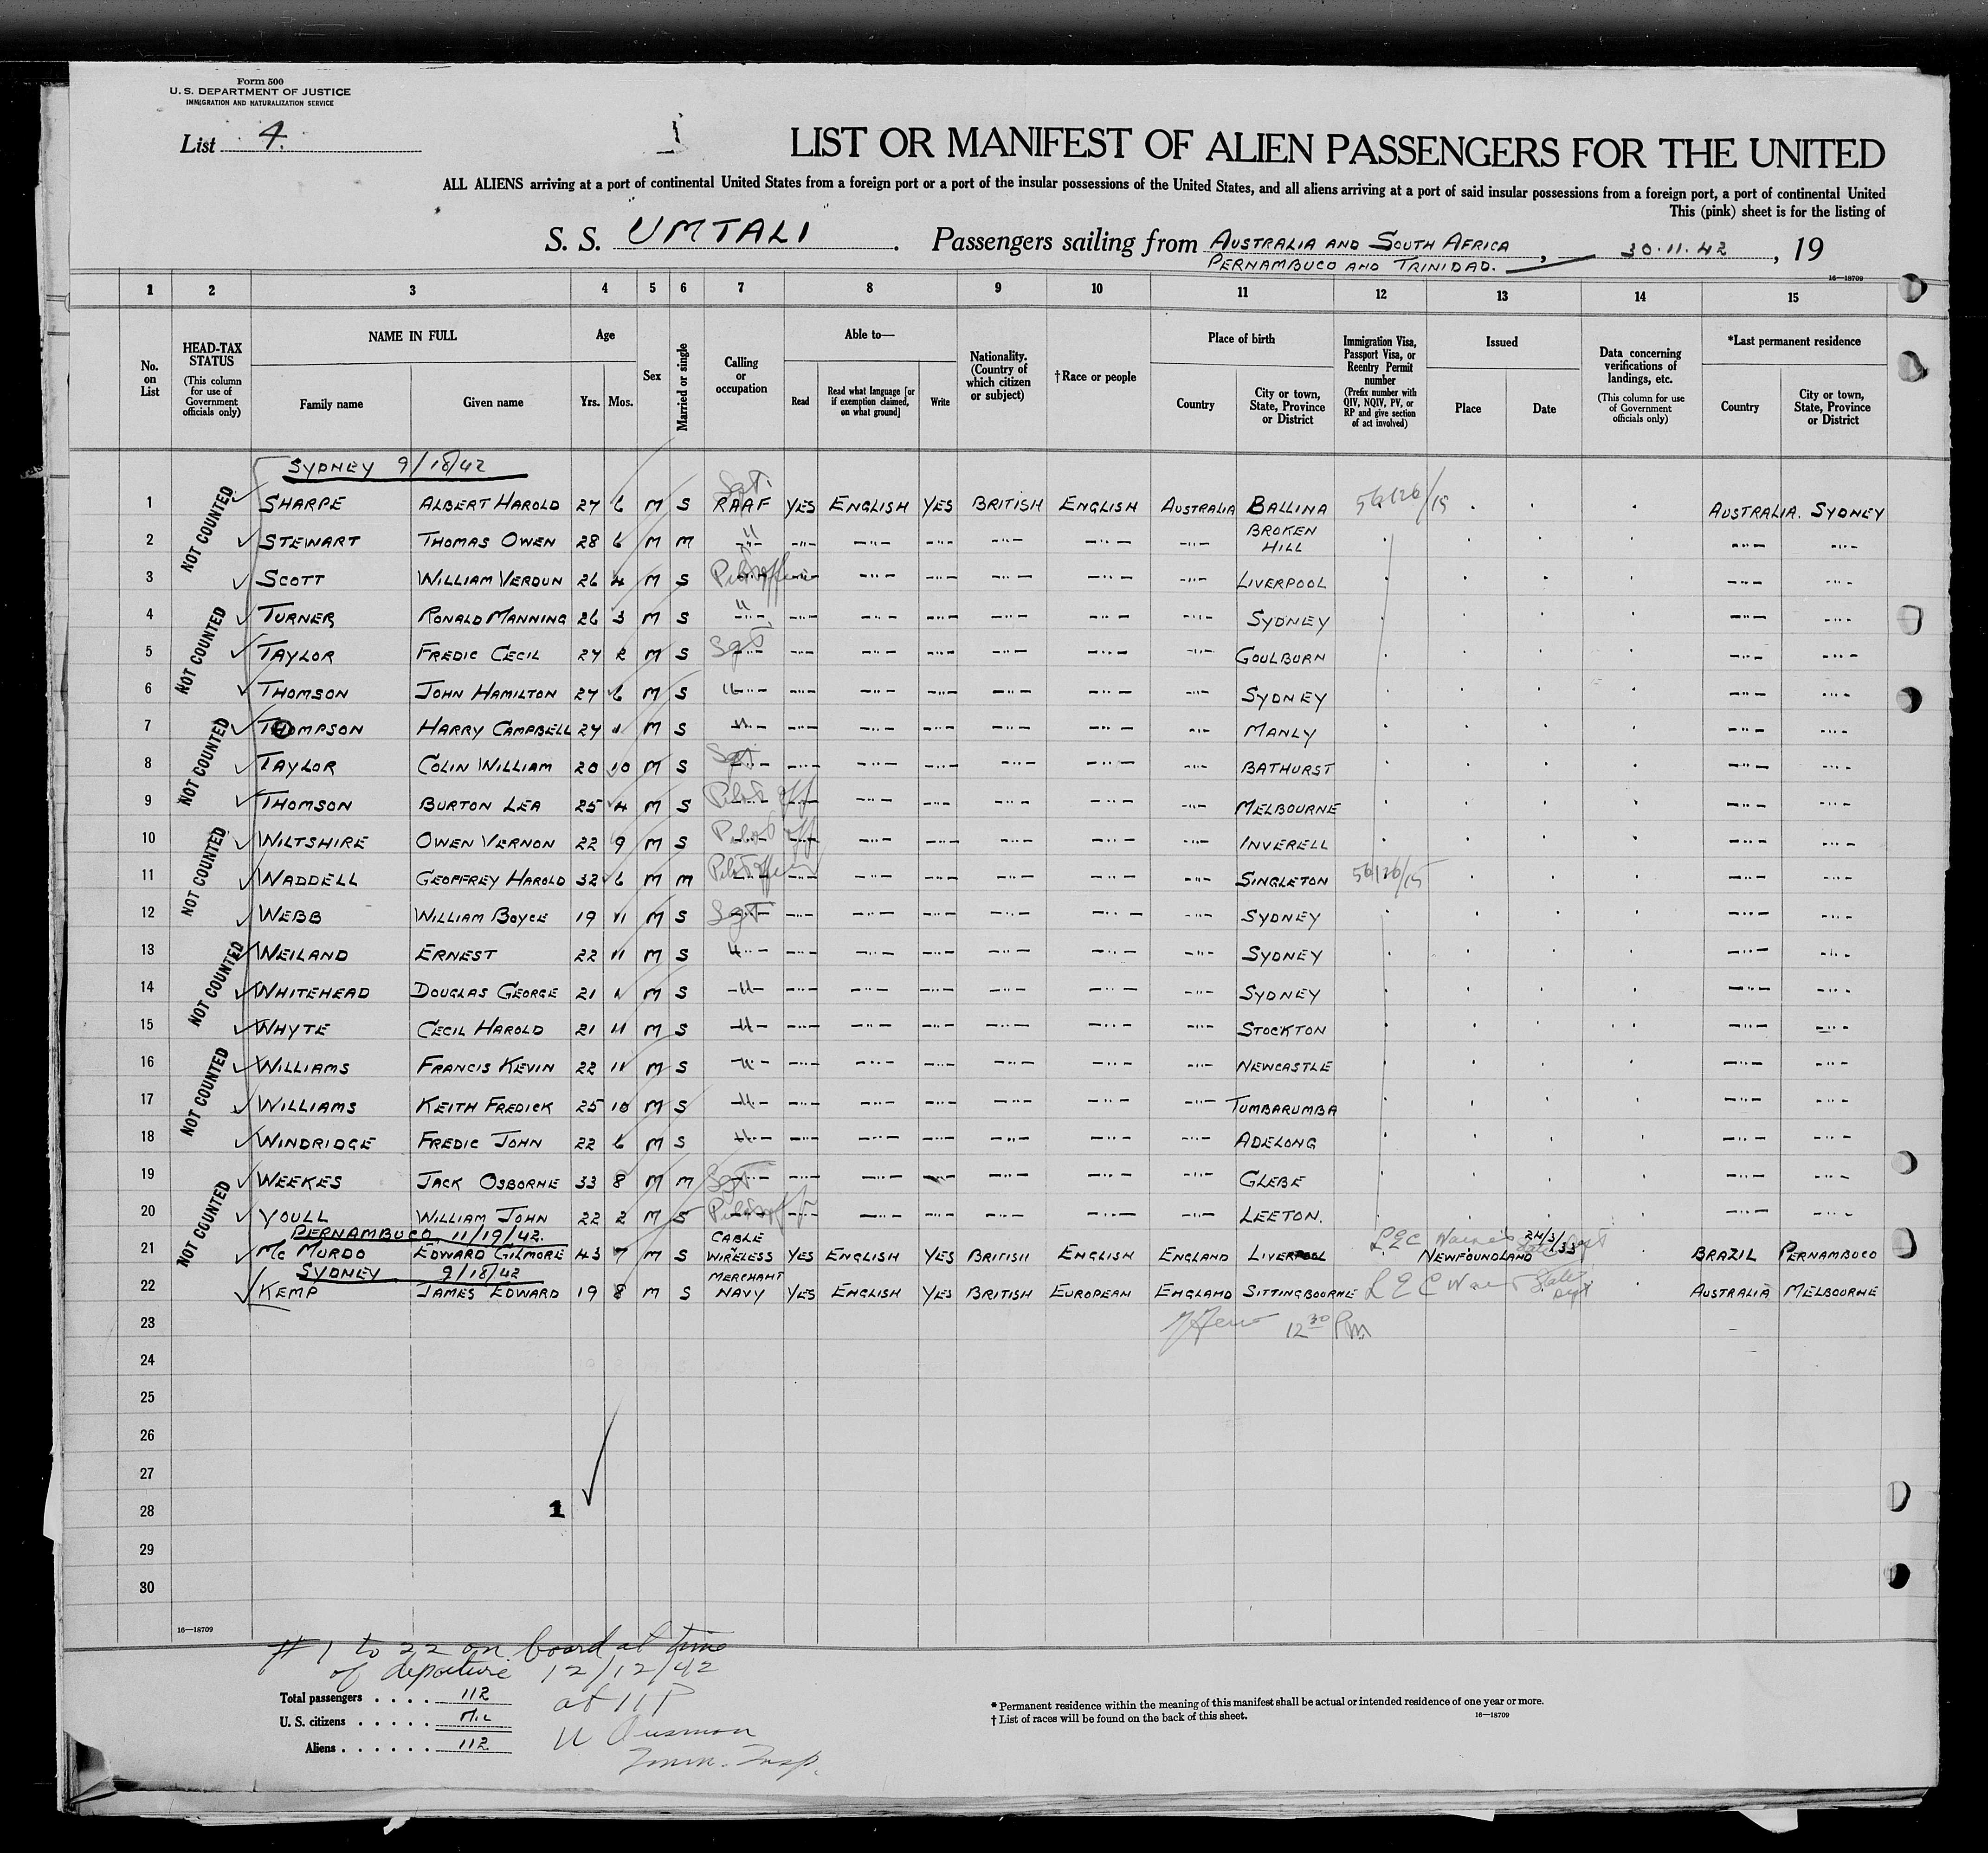 Form 500
U. S. DEPARTMENT OF JUSTICE
IMMIGRATION AND NATURALIZATION SERVICE
List 4.
LIST OR MANIFEST OF ALIEN PASSENGERS FOR THE UNITED
ALL ALIENS arriving at a port of continental United States from a foreign port or a port of the insular possessions of the United States, and all aliens arriving at a port of said insular possessions from a foreign port, a port of continental United
This (pink) sheet is for the listing of
S. S. UMTALI . Passengers sailing from AUSTRALIA AND SOUTH AFRICA , 30.11.42 , 19
PERNAMBUCO AND TRINIDAD.
16—18709
1 2 3 4 5 6 7 8 9 10 11 12 13 14 15
No. on List
HEAD-TAX STATUS (This column for use of Government officials only)
NAME IN FULL Family name Given name
Age Yrs. Mos.
Sex
Married or single
Calling or occupation
Able to— Read Read what language [or if exemption claimed, on what ground] Write
Nationality. (Country of which citizen or subject)
†Race or people
Place of birth Country City or town, State, Province or District
Immigration Visa, Passport Visa, or Reentry Permit number (Prefix number with QIV, NQIV, PV, or RP and give section of act involved)
Issued Place Date
Data concerning verifications of landings, etc. (This column for use of Government officials only)
*Last permanent residence Country City or town, State, Province or District
SYDNEY 9/18/42
1 SHARPE ALBERT HAROLD 27 6 M S Sgt. RAAF YES ENGLISH YES BRITISH ENGLISH AUSTRALIA BALLINA 56/126/15 AUSTRALIA. SYDNEY
2 STEWART THOMAS OWEN 28 6 M M " —"— —"— —"— —"— —"— —"— BROKEN HILL —"— —"—
3 SCOTT WILLIAM VERDUN 26 4 M S Pilot officer —"— —"— —"— —"— —"— —"— LIVERPOOL —"— —"—
4 TURNER RONALD MANNING 26 3 M S " —"— —"— —"— —"— —"— —"— SYDNEY —"— —"—
5 TAYLOR FREDIC CECIL 27 2 M S Sgt —"— —"— —"— —"— —"— —"— GOULBURN —"— —"—
6 THOMSON JOHN HAMILTON 27 6 M S " —"— —"— —"— —"— —"— —"— SYDNEY —"— —"—
7 THOMPSON HARRY CAMPBELL 27 1 M S " —"— —"— —"— —"— —"— —"— MANLY —"— —"—
8 TAYLOR COLIN WILLIAM 20 10 M S Sgt —"— —"— —"— —"— —"— —"— BATHURST —"— —"—
9 THOMSON BURTON LEA 25 4 M S Pilot off —"— —"— —"— —"— —"— —"— MELBOURNE —"— —"—
10 WILTSHIRE OWEN VERNON 22 9 M S Pilot off —"— —"— —"— —"— —"— —"— INVERELL —"— —"—
11 WADDELL GEOFFREY HAROLD 32 6 M M Pilot officer —"— —"— —"— —"— —"— —"— SINGLETON 56/126/15 —"— —"—
12 WEBB WILLIAM BOYCE 19 11 M S Sgt —"— —"— —"— —"— —"— —"— SYDNEY —"— —"—
13 WEILAND ERNEST 22 11 M S " —"— —"— —"— —"— —"— —"— SYDNEY —"— —"—
14 WHITEHEAD DOUGLAS GEORGE 21 1 M S " —"— —"— —"— —"— —"— —"— SYDNEY —"— —"—
15 WHYTE CECIL HAROLD 21 11 M S " —"— —"— —"— —"— —"— —"— STOCKTON —"— —"—
16 WILLIAMS FRANCIS KEVIN 22 11 M S " —"— —"— —"— —"— —"— —"— NEWCASTLE —"— —"—
17 WILLIAMS KEITH FREDICK 25 10 M S " —"— —"— —"— —"— —"— —"— TUMBARUMBA —"— —"—
18 WINDRIDGE FREDIC JOHN 22 6 M S " —"— —"— —"— —"— —"— —"— ADELONG —"— —"—
19 WEEKES JACK OSBORNE 33 8 M M Sgt —"— —"— —"— —"— —"— —"— GLEBE —"— —"—
20 YOULL WILLIAM JOHN 22 2 M S Pilot off —"— —"— —"— —"— —"— —"— LEETON.
PERNAMBUCO, 11/19/42.
21 MC MURDO EDWARD GILMORE 43 7 M S CABLE WIRELESS YES ENGLISH YES BRITISH ENGLISH ENGLAND LIVERPOOL NEWFOUNDLAND 24/3/33 BRAZIL PERNAMBUCO
SYDNEY 9/18/42
22 KEMP JAMES EDWARD 19 8 M S MERCHANT NAVY YES ENGLISH YES BRITISH EUROPEAN ENGLAND SITTINGBOURNE AUSTRALIA MELBOURNE
23 12 30 PM
24
25
26
27
28 1
29
30
NOT COUNTED
NOT COUNTED
NOT COUNTED
NOT COUNTED
NOT COUNTED
NOT COUNTED
NOT COUNTED
16—18709
# 1 to 22 on board at time
of departure 12/12/42
at 11 P
Total passengers . . . . 112
U. S. citizens . . . . . NIL
Aliens . . . . . . 112
Imm. Insp.
* Permanent residence within the meaning of this manifest shall be actual or intended residence of one year or more.
† List of races will be found on the back of this sheet.
16—18709